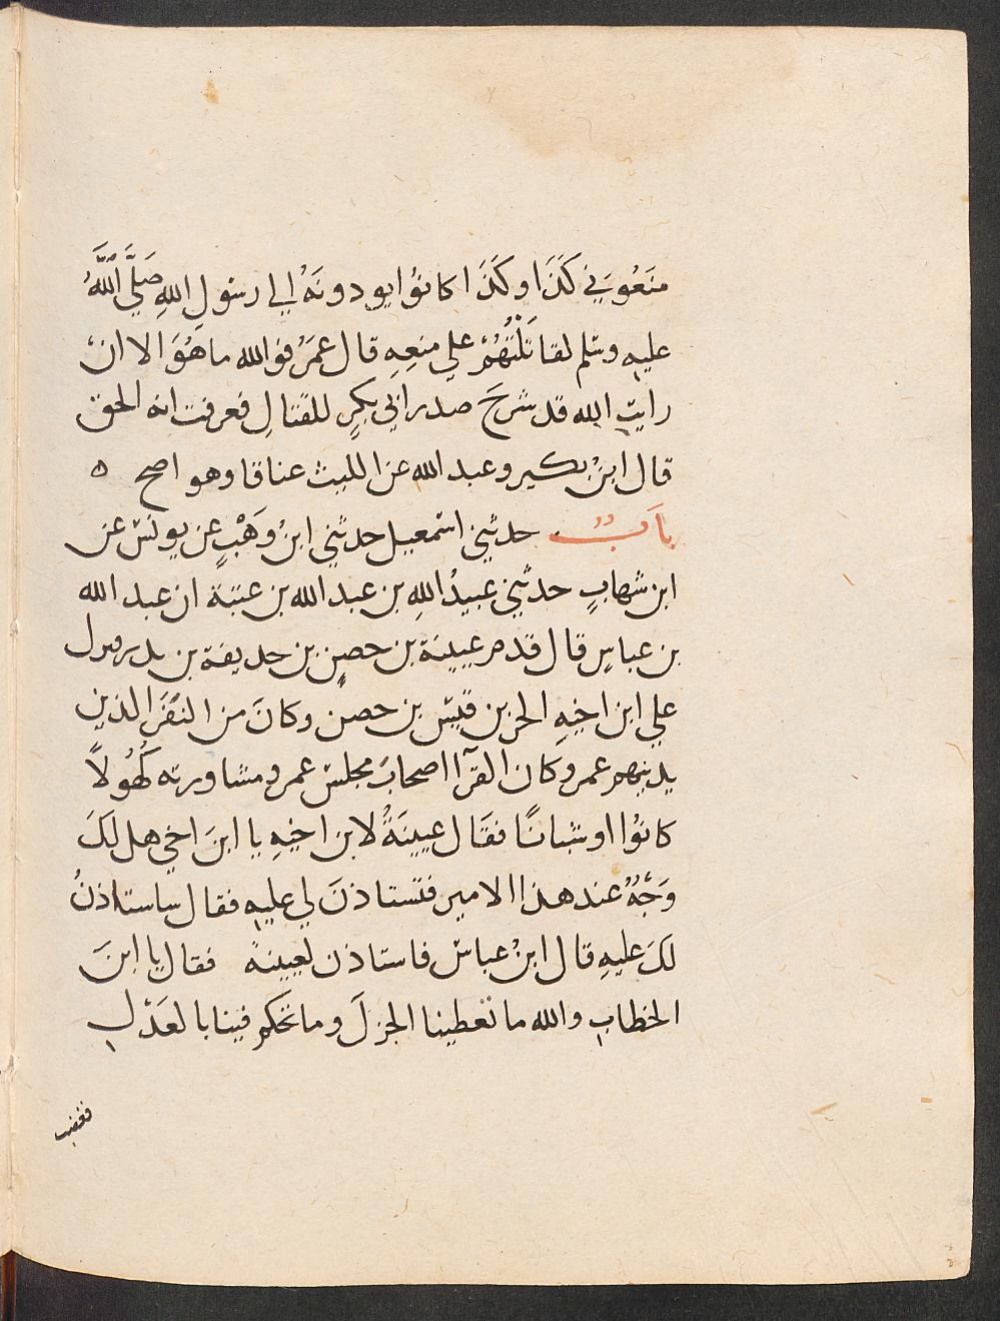 منَعُوَنِي كَذَا وكَذَا كانوُا يودونَهُ الي رسولِ اللهِ صَلَّي اللَّهُ
عليهِ وسَلم لقاتَلْتُهُمْ علي منعِهِ قال عمَرُ فوالله ما هُوَ الا ان
رايتِ الله قد شرحَ صدر ابي بكرٍ للقتالِ فعرفت انه الحق
قال ابنُ بكير وعبد الله عن الليث عناقا وهو اصح ٥
بابٌ حدثني اسمعيل حدثني ابنُ وَهْبٍ عن يونس عن
ابن شهابٍ حدثني عبيدُ اللهِ بن عبد الله بن عتبة ان عبد الله
بن عباسٍ قال قدم عيينة بن حصنٍ بن حذيفة بن بدر فنزل
علي ابن اخيهِ الحر بن قيس بن حصن وكانَ من النفَرَ الذين
يدنيهم عمر وكان القرآ اصحابَ مجلس عمر ومشاورته كُهُولاً
كانوُا او شبانًا فقَال عيينَةُ لابن اخيهِ يا ابنَ اخي هل لكَ
وَجْهٌ عند هذا الامير فتستاذنَ لي عليهِ فقال ساستاذنُ
لكَ عليهِ قال ابنُ عباس فاستاذن لعيينة فقال يا ابنَ
الخطابِ والله ما تعطينا الجزلَ وما تحكم فينا بالعَدْلِ
فغضب